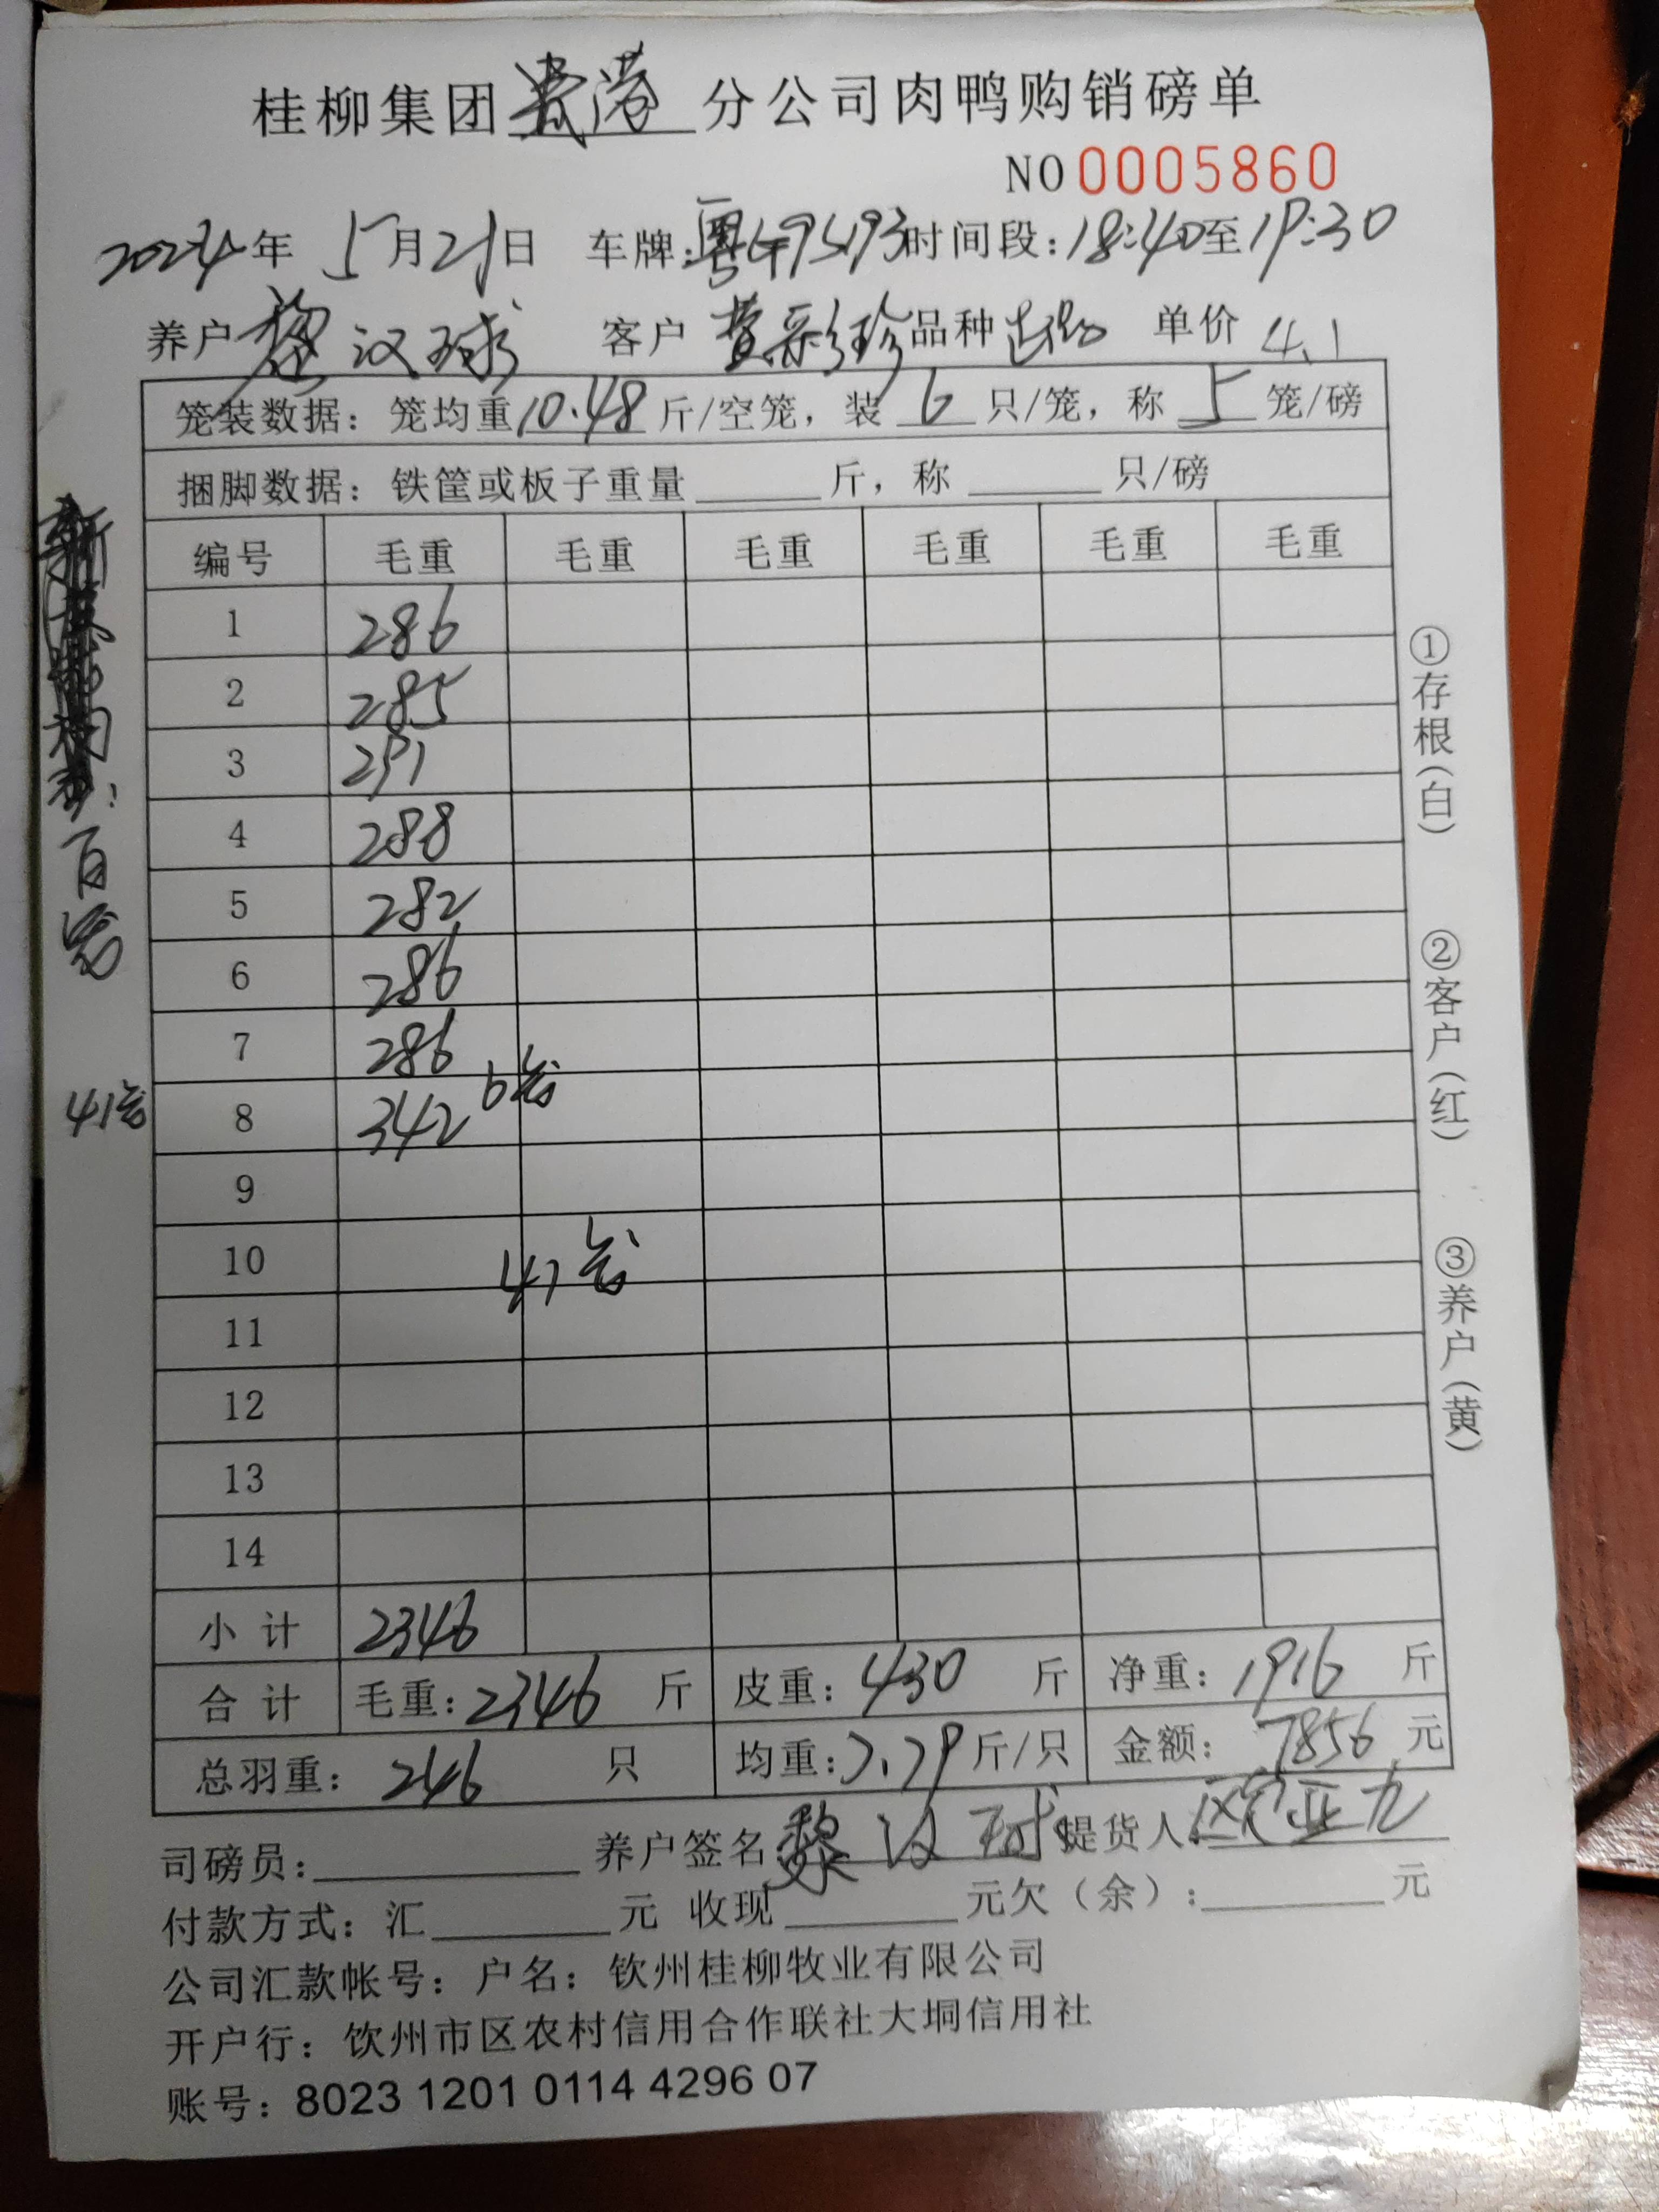 桂柳集团贵港分公司肉鸭购销磅单
NO 0005860
2024年 5月21日 车牌: 时间段:18:40至19:30
养户 黎汉球 客户 黄彩珍 品种 单价 4.1
笼装数据: 笼均重10.48斤/空笼, 装 6 只/笼, 称 5 笼/磅
捆脚数据: 铁筐或板子重量 斤, 称 只/磅
编号 毛重 毛重 毛重 毛重 毛重 毛重
1 286
2 285
3 291
4 288
5 282
6 286
7 286
8 342 6
9
10 41
11
12
13
14
小 计 2346
合 计 毛重:2346 斤 皮重:430 斤 净重:1916 斤
总羽重: 246 只 均重:7.79斤/只 金额: 7856元
司磅员: 养户签名 黎汉球 提货人:
付款方式: 汇 元 收现 元欠(余): 元
公司汇款帐号: 户名: 钦州桂柳牧业有限公司
开户行: 钦州市区农村信用合作联社大垌信用社
账号: 8023 1201 0114 4296 07
百
41
①存根(白)
②客户(红)
③养户(黄)